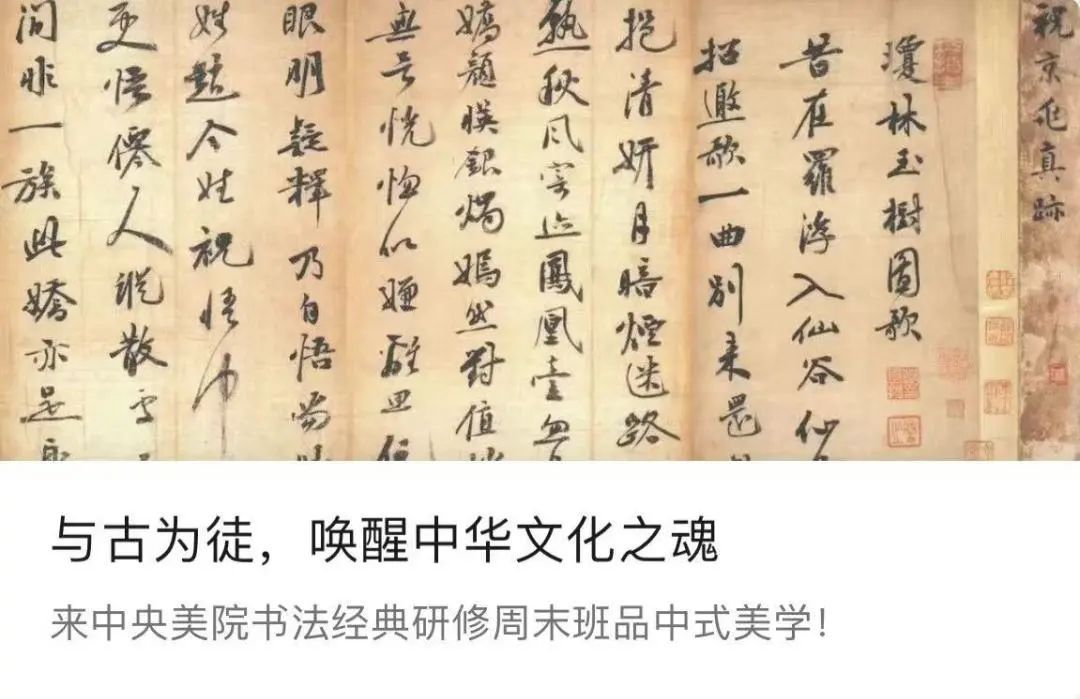 祝京兆真跡
瓊林玉樹圖歌
昔在羅浮入仙谷仙
招邀歌一曲别来
抱清妍月暗煙迷路
熱秋風寄迹鳳凰臺忽
嬌顔暎銀燭嫣然對值
無言恍惚似
眼明疑釋乃自悟
姓趙今姓祝悟
更悟僊人
間非一族此嬌亦是
与古为徒，唤醒中华文化之魂
来中央美院书法经典研修周末班品中式美学！